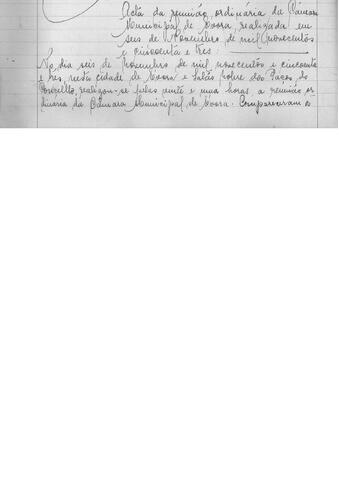 Acta da reunião ordinária da Câmara
Municipal de Évora realizada em
seis de Novembro de mil novecentos
e cincoenta e três:
No dia seis de Novembro de mil novecentos e cincoenta
e três, nesta cidade de Évora e Salão Nobre dos Paços do
Concelho, realizou-se pelas vinte e uma horas, a reunião or
dinária da Câmara Municipal de Évora. Compareceram os